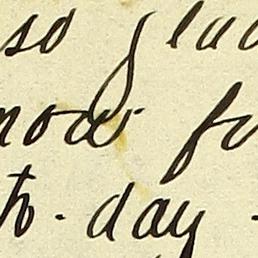 so glad
now fo
to-day -